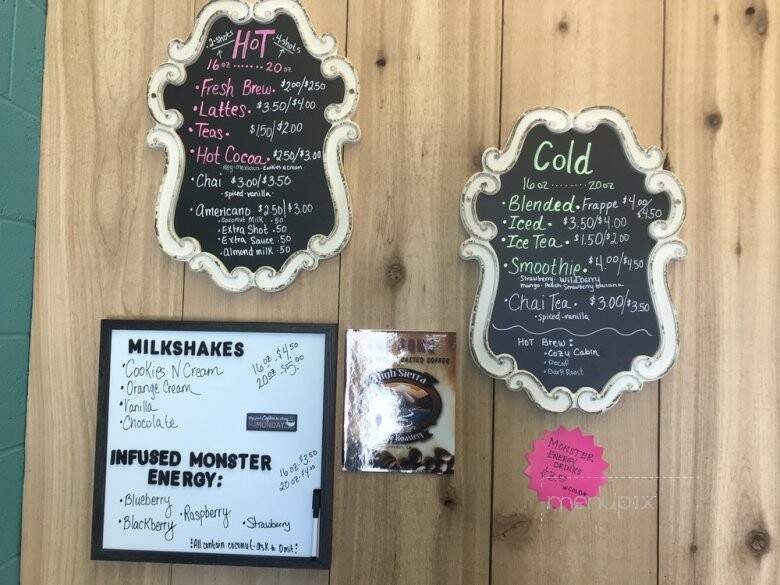 HOT
2-shots
4-shots
16 oz ....... 20 oz
• Fresh Brew. $2.00/$2.50
• Lattes. $3.50/$4.00
• Teas. $1.50/$2.00
• Hot Cocoa. $2.50/$3.00
Reg-Mexican- Cookies n Cream
• Chai $3.00/$3.50
spiced-vanilla
• Americano $2.50/$3.00
Coconut milk .50
• Extra Shot .50
• Extra Sauce .50
• almond milk .50
Cold
16 oz ........ 20 oz
• Blended. Frappe $4.00/$4.50
• Iced. $3.50/$4.00
• Ice Tea. $1.50/$2.00
• Smoothie. $4.00/$4.50
Strawberry- Wildberry
mango- Peach Strawberry banana
• Chai Tea. $3.00/$3.50
• spiced-vanilla
HOT Brew:
• Cozy Cabin
• Decaf
• Dark Roast
MILKSHAKES
• Cookies N Cream
• Orange Cream
• Vanilla
• Chocolate
16 oz - $4.50
20 oz - $5.00
MONDAY
INFUSED MONSTER
ENERGY:
16 oz - $3.50
20 oz - $4.00
• Blueberry
• Raspberry
• Blackberry
• Strawberry
All contain coconut-ask to omit!
High Sierra
MONSTER
ENERGY
DRINKS
menupix